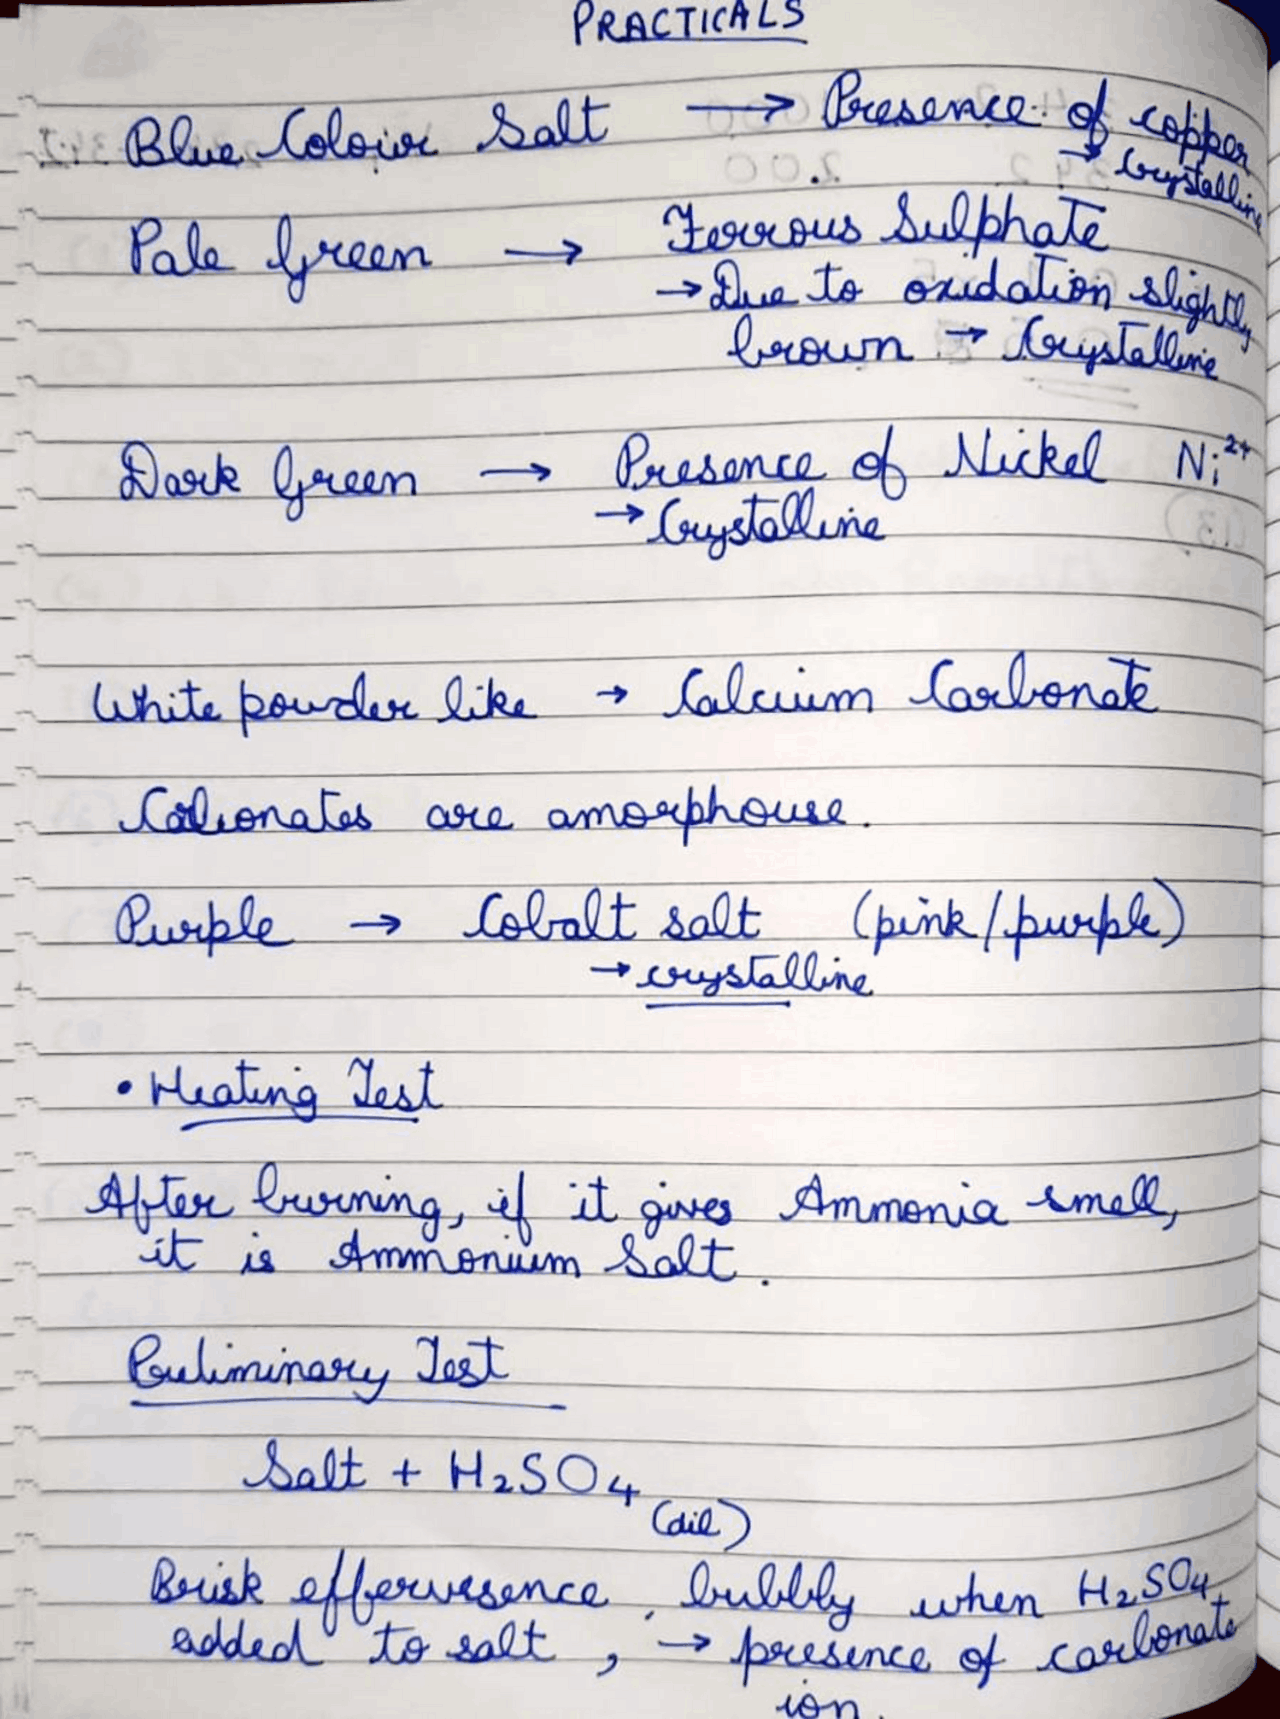 PRACTICALS
Blue Colour Salt → Presence of copper
→ Crystalline
Pale Green → Ferrous Sulphate
→ Due to oxidation slightly
brown → Crystalline
Dark Green → Presence of Nickel Ni²⁺
→ Crystalline
White powder like → Calcium Carbonate
are amorphouse.
Purple → Cobalt salt (pink/purple)
→ crystalline
• Heating Test
After burning, if it gives Ammonia smell,
it is Ammonium Salt.
Preliminary Test
Salt + H₂SO₄ (dil)
Brisk effervesence, bubbly when H₂SO₄
added to salt, → presence of carbonate
ion.